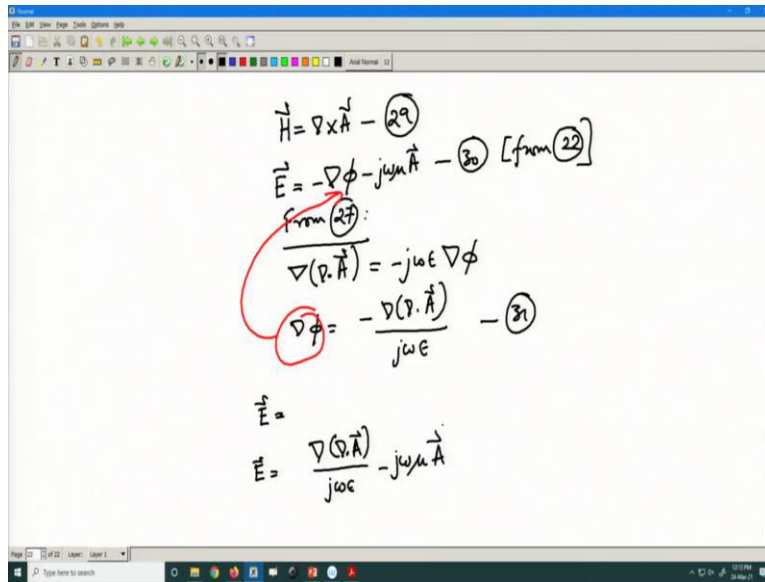 File Edit View Page Tools Options Help
Arial Normal 12
H⃗ = ∇×A⃗ – (29)
E⃗ = -∇ϕ - jωμA⃗ – (30) [from (22)]
from (27):
∇(∇.A⃗) = -jωϵ ∇ϕ
∇ϕ = - ∇(∇.A⃗) / jωϵ – (31)
E⃗ =
E⃗ = ∇(∇.A⃗) / jωϵ - jωμA⃗
Page 22 of 22 Layer: Layer 1
Type here to search
12:13 PM
24-Mar-21